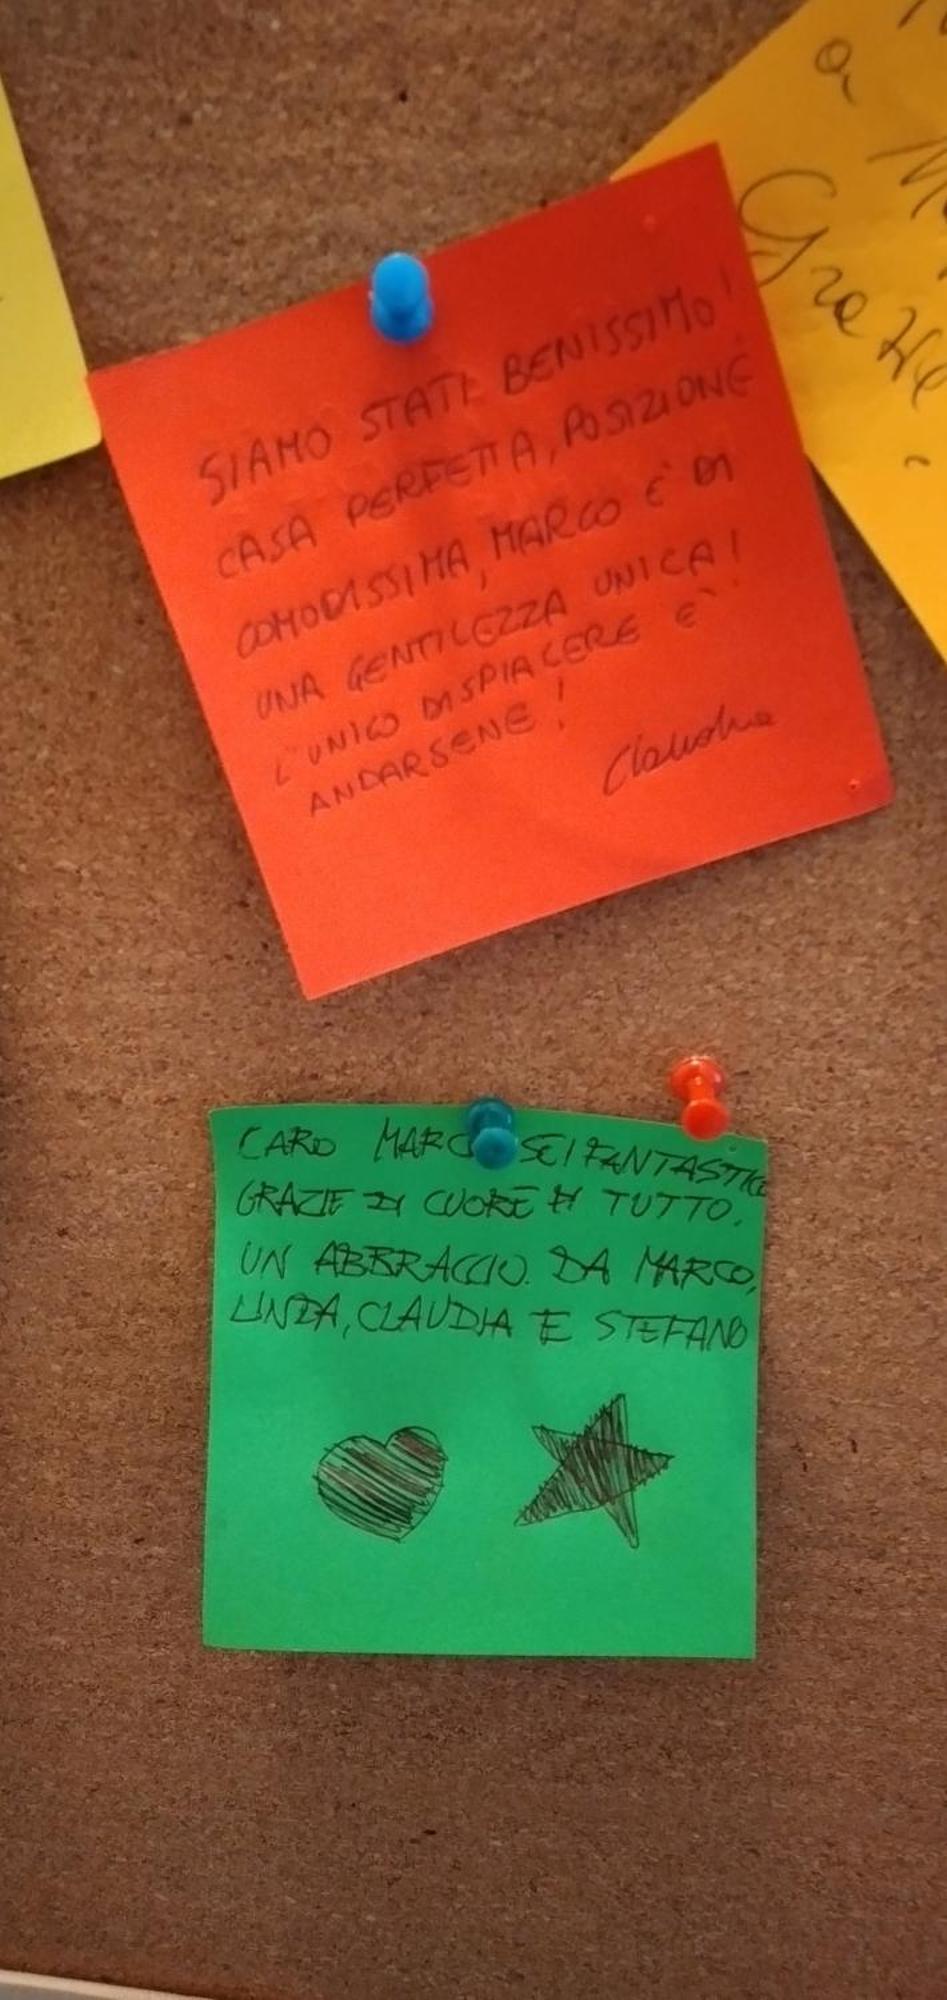 SIAMO STATI BENISSIMO!
CASA PERFETTA, POSIZIONE
COMODISSIMA, MARCO È DI
UNA GENTILEZZA UNICA!
L'UNICO DISPIACERE È
ANDARSENE!
Claudia
a
Grazie
CARO MARCO SEI FANTASTICO
GRAZIE DI CUORE DI TUTTO.
UN ABBRACCIO. DA MARCO,
LINDA, CLAUDIA E STEFANO